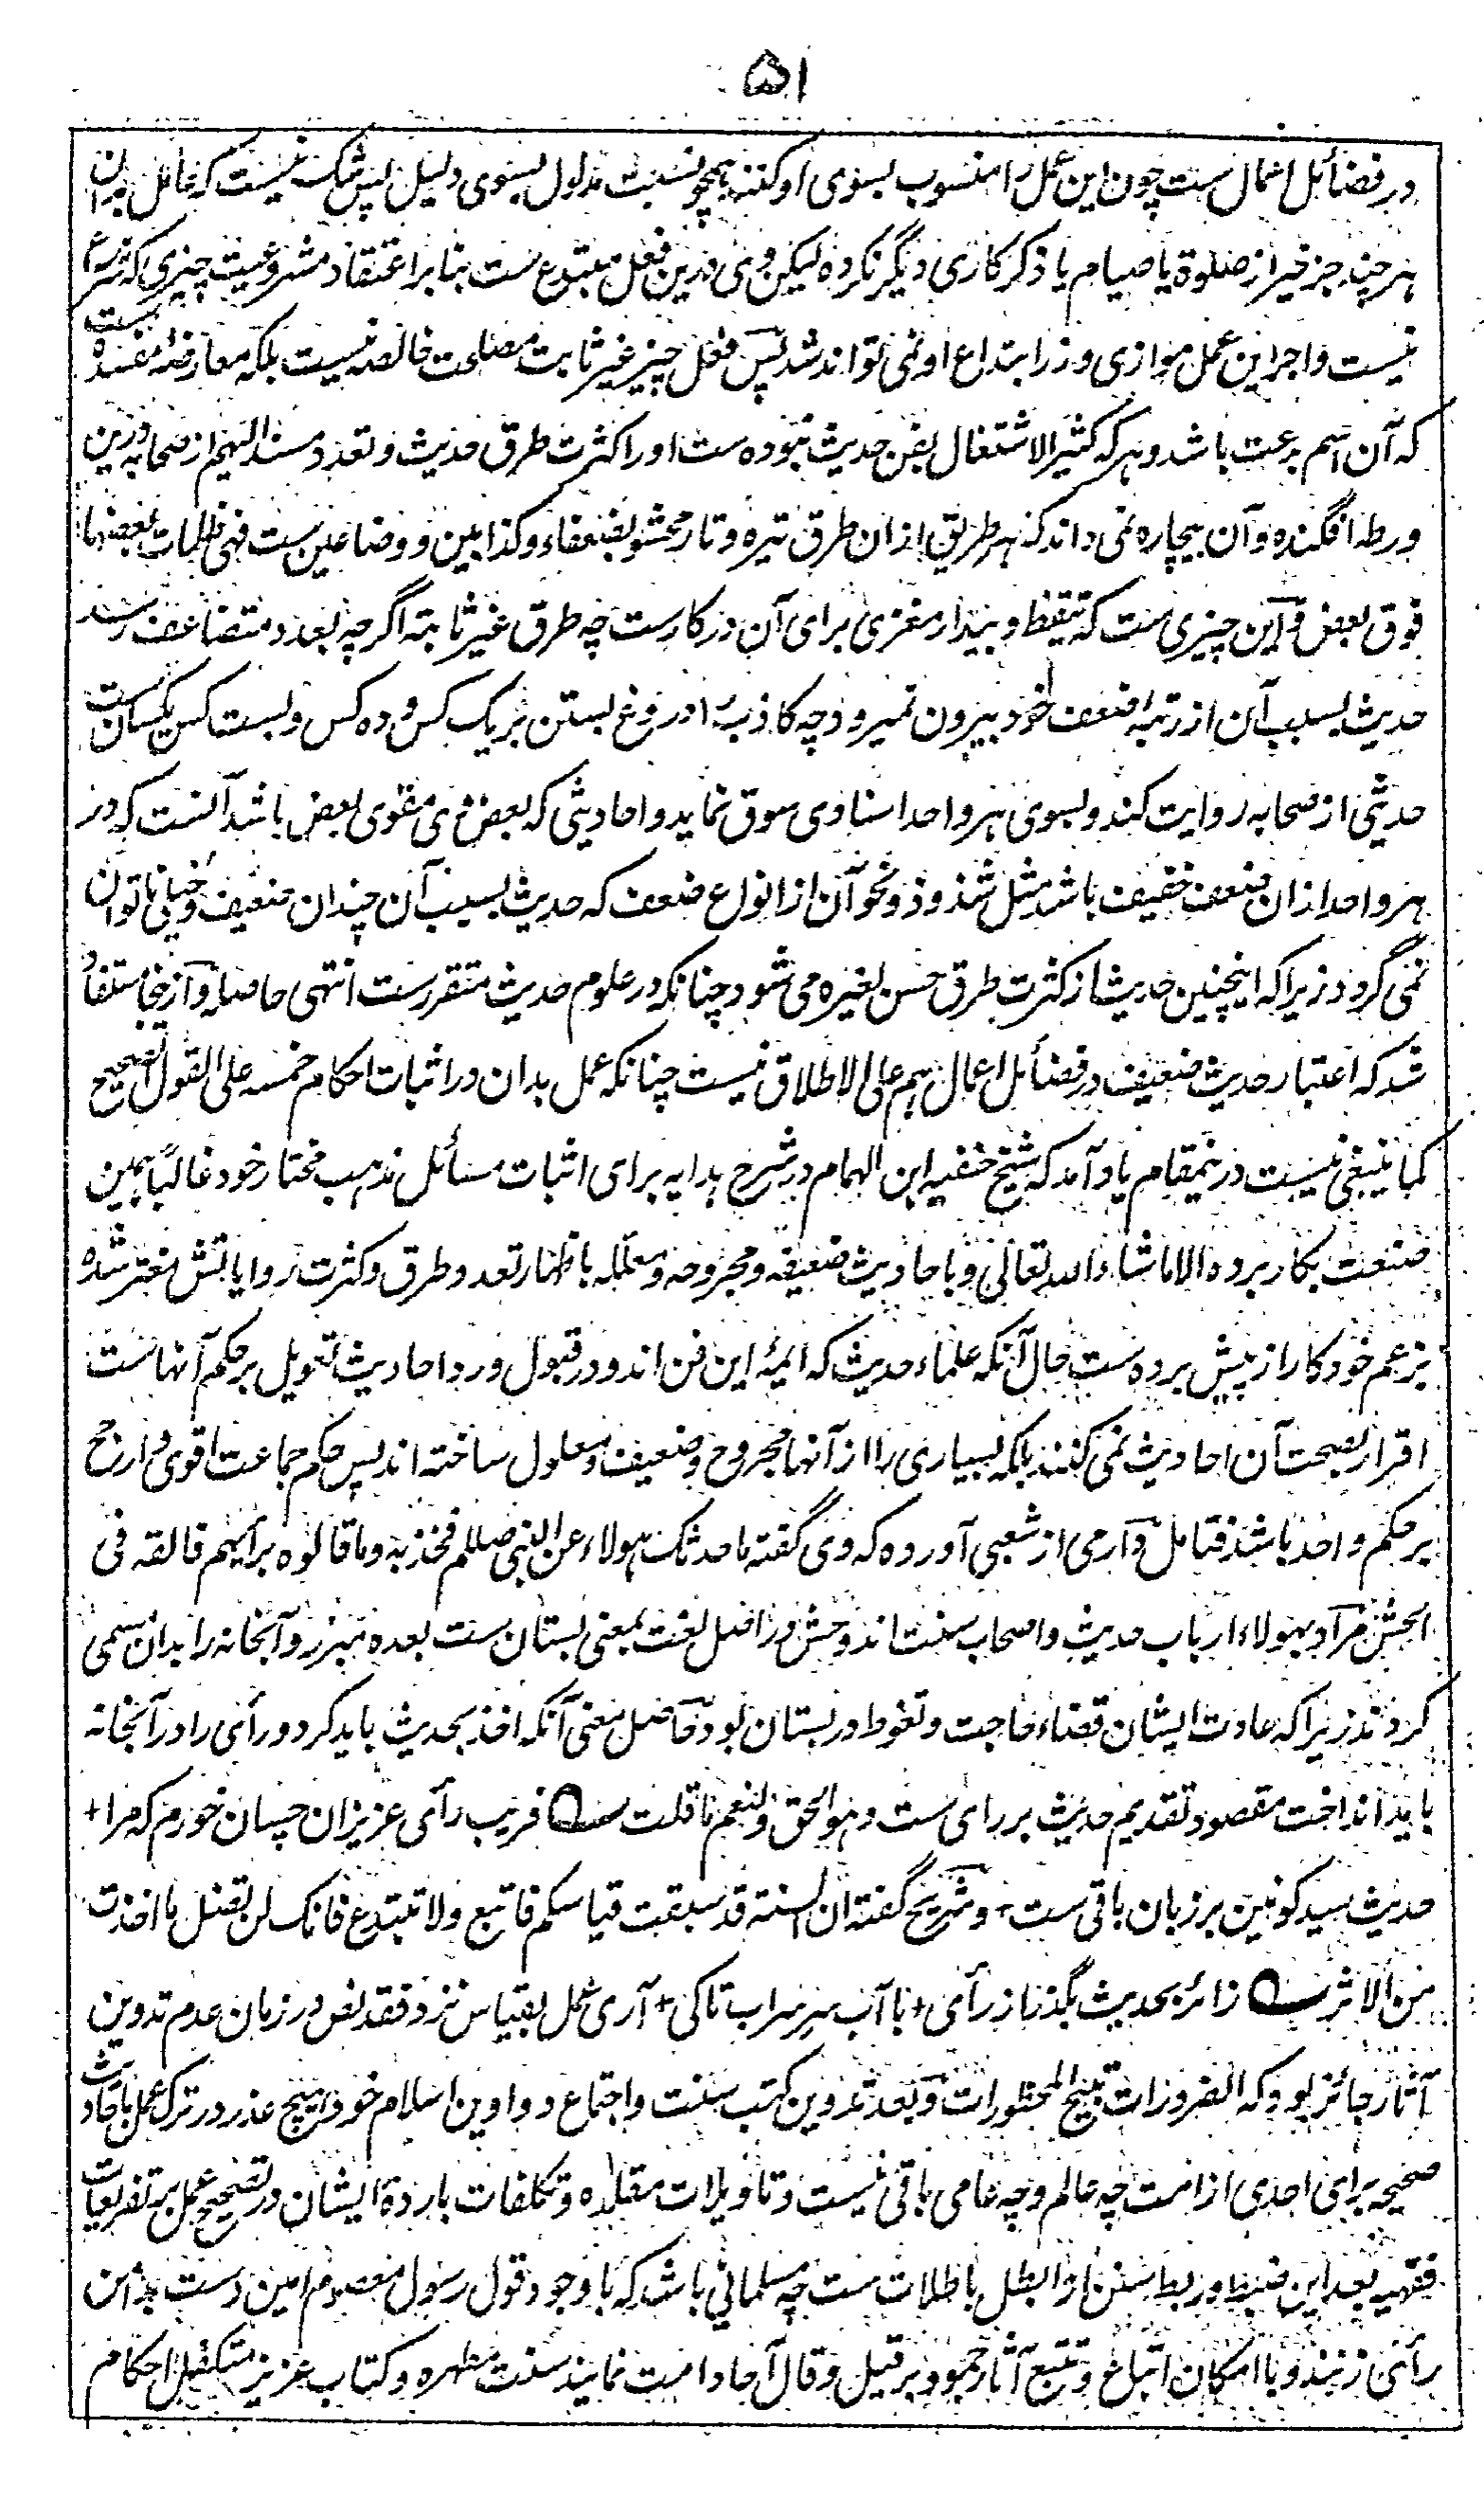 ۵۱
در فضائل اعمال ست چون این عمل را منسوب بسوی او کنند همچو نسبت مدلول بسوی دلیل پس شک نیست که عامل بدان
هر چند جز خیر از صلوة یا صیام یا ذکر کاری دیگر نکرده لیکن وی درین فعل مبتدع ست بنا بر اعتقاد مشروعیت چیزی که شرعا
نیست و اجر این عمل موازی وزر ابتداع او نمی تواند شد پس فعل چیز غیر ثابت مصلحت خالصه نیست بلکه معارضه مفسده ست
که آن اسم بدعت باشد و هر که کثیر الاشتغال بفن حدیث نبوده ست او را کثرت طرق حدیث و تعدد مسند الیهم از صحابه درین
ورطه افگنده و آن بیچاره نمی داند که هر طریق ازان طرق تیره و تار محشو بضعفاء و کذابین و وضاعین ست فهی ظلمات بعضها
فوق بعض و این چیزی ست که تیقظ و بیدار مغزی برای آن درکارست چه طرق غیر ثابته اگرچه بعدد متضاعف رسد
حدیث بسبب آن از رتبه ضعف خود بیرون نمیرود چه کاذب را دروغ بستن بر یک کس و ده کس و بست کس یکسان ست
حدیثی از صحابه روایت کند و بسوی هر واحد اسنادی سوق نماید و احادیثی که بعض وی مقوی بعض باشد آنست که در
هر واحد ازان ضعف خفیف باشد مثل شذوذ و نحو آن از انواع ضعف که حدیث بسبب آن چندان ضعیف و خیلی ناتوان
نمی گردد زیرا که اینچنین حدیث از کثرت طرق حسن لغیره می شود چنانکه در علوم حدیث متقررست انتهی حاصله و ازینجا مستفاد
شد که اعتبار حدیث ضعیف در فضائل اعمال هم علی الاطلاق نیست چنانکه عمل بدان در اثبات احکام خمسه علی القول الصحیح
کما ینبغی نیست درینمقام یاد آمد که شیخ حنفیه ابن الهمام در شرح هدایه برای اثبات مسائل مذهب مختار خود غالباً همین
صنعت بکار برده الا ما شاء الله تعالی و با حادیث ضعیفه و مجروحه و معلله باظهار تعدد طرق و کثرت روایاتش مغتر شده
بزعم خود کار از پیش برده ست حال آنکه علماء حدیث که ائمهٔ این فن اند و در قبول و رد احادیث تعویل بر حکم آنهاست
اقرار بصحت آن احادیث نمی کنند بلکه بسیاری را از آنها مجروح و ضعیف و معلول ساخته اند پس حکم جماعت اقوی و ارجح
بر حکم واحد باشد فتامل دارمی از شعبی آورده که وی گفته ما حدثک هولاء عن النبی صللم فخذ به و ما قالوه برایهم فالقه فی
الحش مراد بهولاء ارباب حدیث و اصحاب سنت اند و حش در اصل لغت بمعنی بستان ست بعده مبرز و آبخانه را بدان مسمی
کردند زیرا که عادت ایشان قضاء حاجت و تغوط در بستان بود حاصل معنی آنکه اخذ بحدیث باید کرد و رأی را در آبخانه
باید انداخت مقصود تقدیم حدیث بر رای ست و هو الحق و لنعم ما قلت فریب رأی عزیزان چسان خورم که مرا +
حدیث سید کونین بر زبان باقی ست + و شریح گفته ان السنة قد سبقت قیاسکم فاتبع ولا تبتدع فانک لن تضل ما اخذت
من الاثر زائر بحدیث بگذر از رأی + با آب سر سراب تا کی + آری عمل بقیاس نزد فقد نص در زمان عدم تدوین
آثار جائز بود که الضرورات تبیح المحظورات و بعد تدوین کتب سنت و اجتماع دواوین اسلام خود هیچ عذر در ترک عمل باحادیث
صحیحه برای احدی از امت چه عالم و چه عامی باقی نیست و تاویلات مقلده و تکلفات باردهٔ ایشان در تصحیح عمل بر تفریعات
فقهیه بعد این ضبط و ربط سنن از ابطل باطلات ست چه مسلمانی باشد که با وجود قول رسول معصوم امین دست بدامن
رأی زنند و با امکان اتباع و تتبع آثار جمود بر قیل و قال آحاد امت نمایند سنت مطهره و کتاب عزیز متکفل احکام